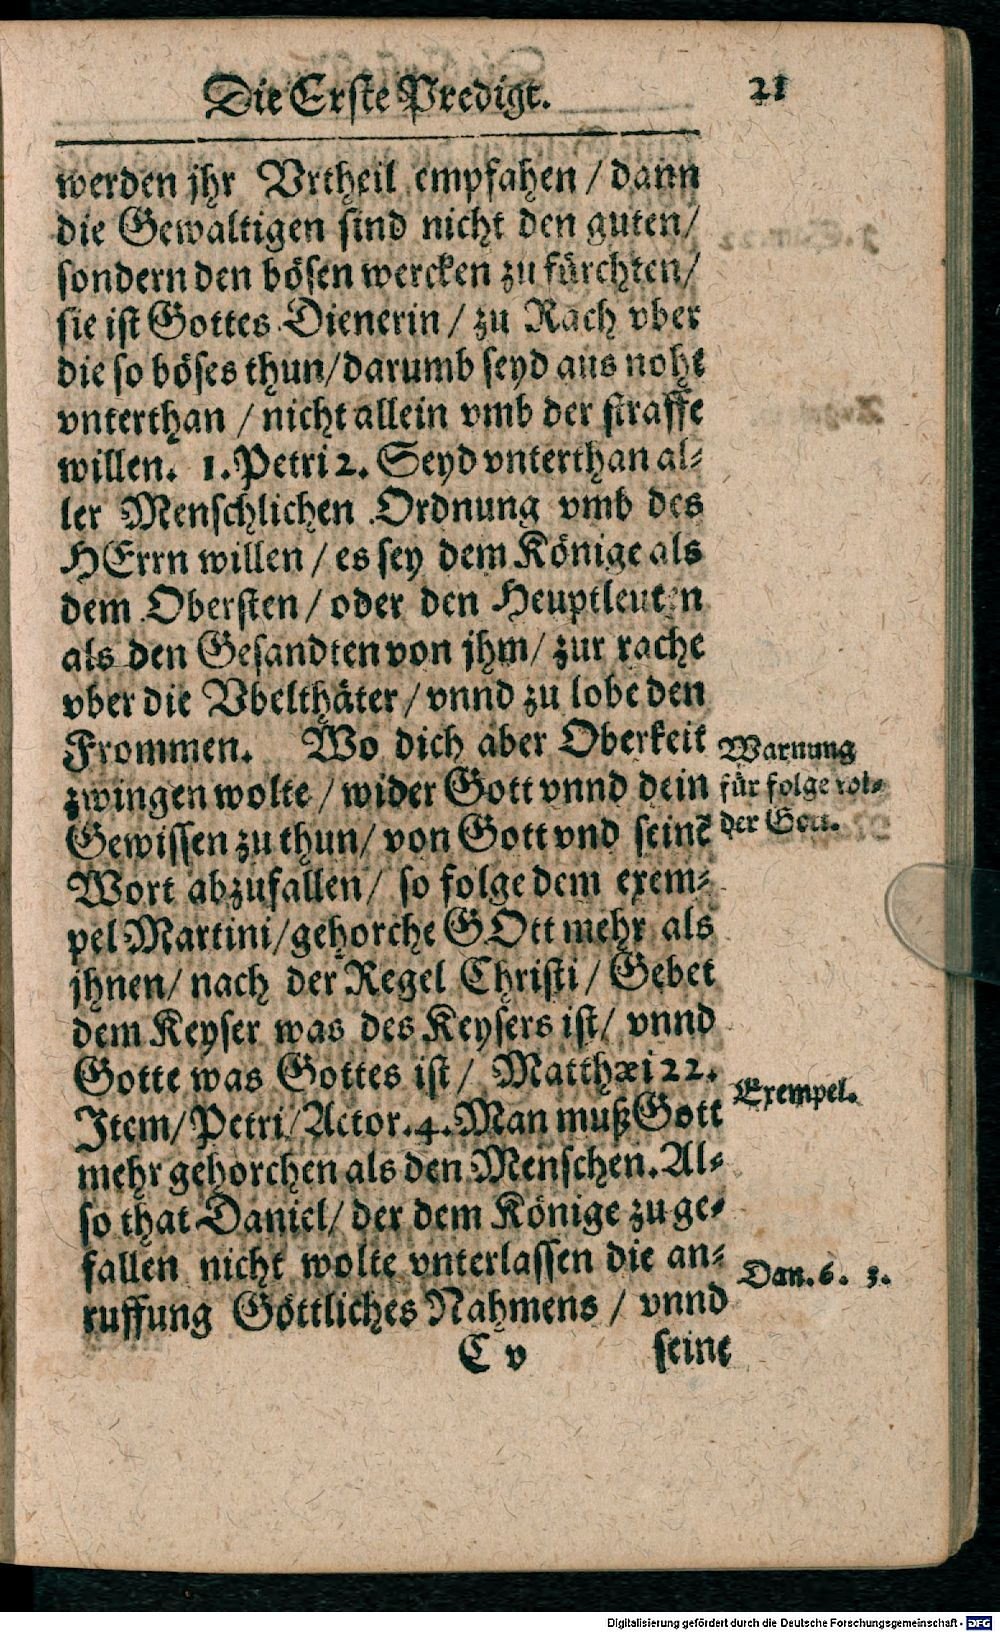 Die Erste Predigt. 21
werden jhr Vrtheil empfahen / dann
die Gewaltigen sind nicht den guten /
sondern den bösen wercken zu fürchten /
sie ist Gottes Dienerin / zu Rach vber
die so böses thun / darumb seyd aus noht
vnterthan / nicht allein vmb der straffe
willen. 1. Petri 2. Seyd vnterthan al-
ler Menschlichen Ordnung vmb des
HErrn willen / es sey dem Könige als
dem Obersten / oder den Heuptleuten
als den Gesandten von jhm / zur rache
vber die Vbelthäter / vnnd zu lobe den
Frommen. Wo dich aber Oberkeit
zwingen wolte / wider Gott vnnd dein
Gewissen zu thun / von Gott vnd seinē
Wort abzufallen / so folge dem exem-
pel Martini / gehorche GOtt mehr als
jhnen / nach der Regel Christi / Gebet
dem Keyser was des Keysers ist / vnnd
Gotte was Gottes ist / Matthæi 22.
Item / Petri / Actor. 4. Man muß Gott
mehr gehorchen als den Menschen. Al-
so that Daniel / der dem Könige zu ge-
fallen nicht wolte vnterlassen die an-
ruffung Göttliches Nahmens / vnnd
C v seine
Warnung
für folge wi-
der Gott.
Exempel.
Dan. 6. 3.
Digitalisierung gefördert durch die Deutsche Forschungsgemeinschaft - DFG